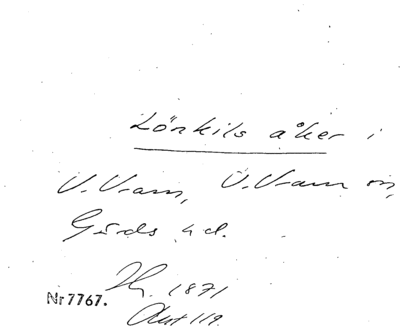 Lönkils åker i
V. Vram, V. Vram sn,
Gärds hd.
1871
Nr 7767.
Akt 119.